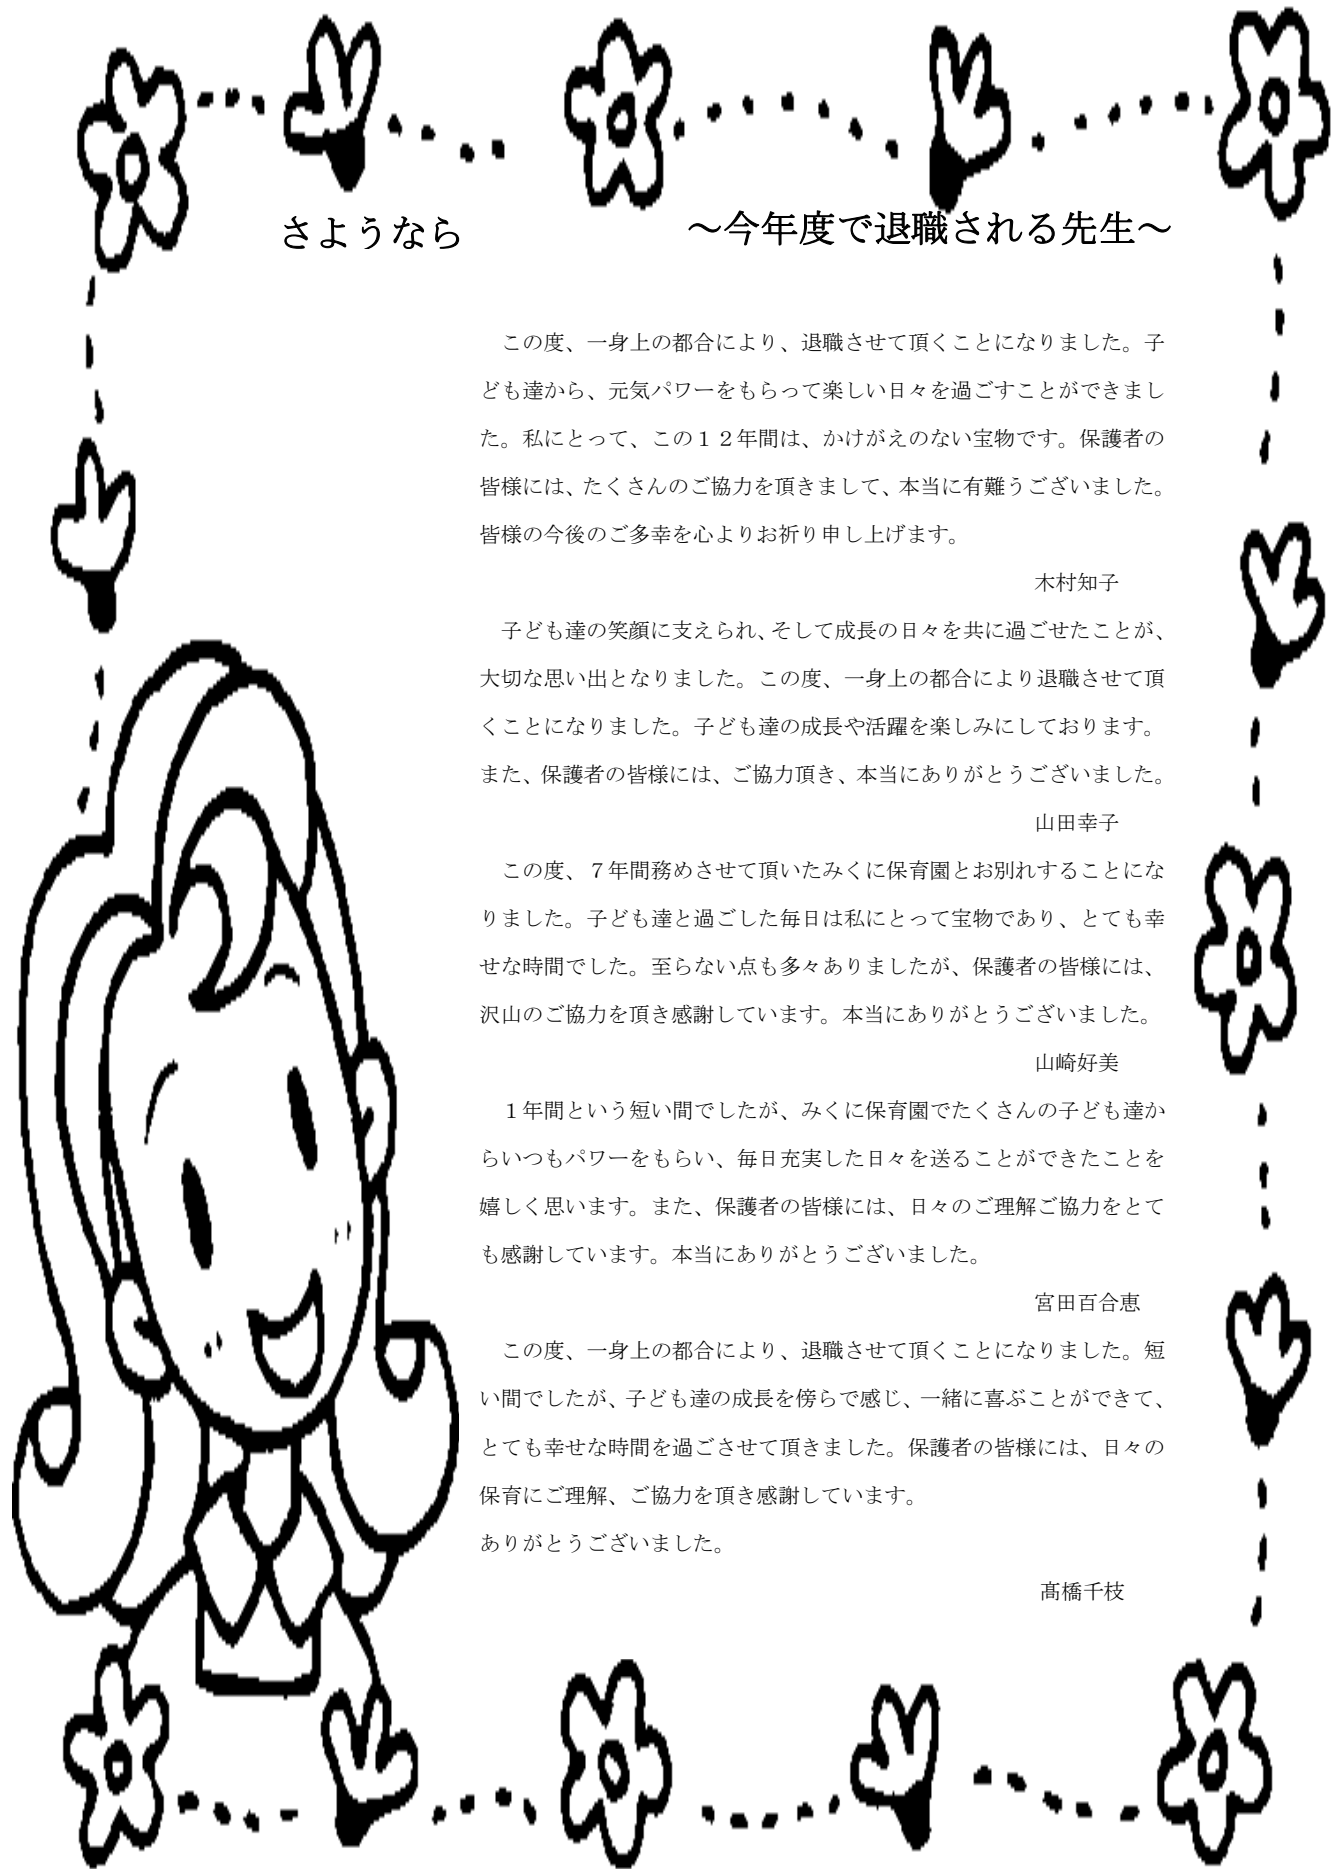 さようなら　～今年度で退職される先生～
　この度、一身上の都合により、退職させて頂くことになりました。子
ども達から、元気パワーをもらって楽しい日々を過ごすことができまし
た。私にとって、この１２年間は、かけがえのない宝物です。保護者の
皆様には、たくさんのご協力を頂きまして、本当に有難うございました。
皆様の今後のご多幸を心よりお祈り申し上げます。
木村知子
　子ども達の笑顔に支えられ、そして成長の日々を共に過ごせたことが、
大切な思い出となりました。この度、一身上の都合により退職させて頂
くことになりました。子ども達の成長や活躍を楽しみにしております。
また、保護者の皆様には、ご協力頂き、本当にありがとうございました。
山田幸子
　この度、７年間務めさせて頂いたみくに保育園とお別れすることにな
りました。子ども達と過ごした毎日は私にとって宝物であり、とても幸
せな時間でした。至らない点も多々ありましたが、保護者の皆様には、
沢山のご協力を頂き感謝しています。本当にありがとうございました。
山崎好美
　１年間という短い間でしたが、みくに保育園でたくさんの子ども達か
らいつもパワーをもらい、毎日充実した日々を送ることができたことを
嬉しく思います。また、保護者の皆様には、日々のご理解ご協力をとて
も感謝しています。本当にありがとうございました。
宮田百合恵
　この度、一身上の都合により、退職させて頂くことになりました。短
い間でしたが、子ども達の成長を傍らで感じ、一緒に喜ぶことができて、
とても幸せな時間を過ごさせて頂きました。保護者の皆様には、日々の
保育にご理解、ご協力を頂き感謝しています。
ありがとうございました。
髙橋千枝